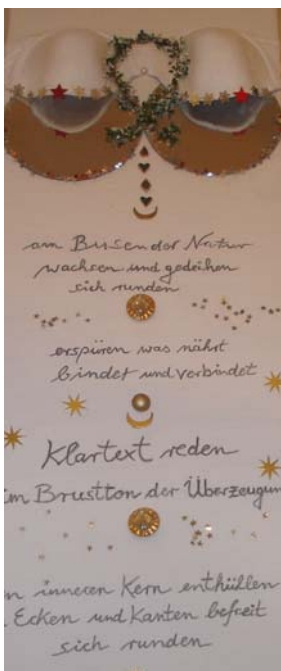 am Busen der Natur
wachsen und gedeihen
sich runden
erspüren was nährt
bindet und verbindet
Klartext reden
im Brustton der Überzeugun
n inneren Kern enthüllen
Ecken und Kanten befreit
sich runden